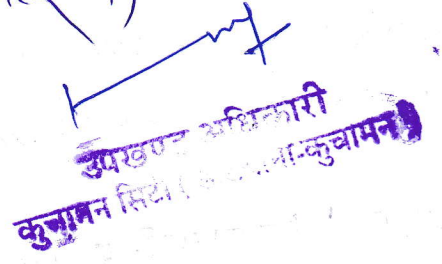 उपखण्ड अधिकारी
कुचामन सिटी ( -कुचामन)